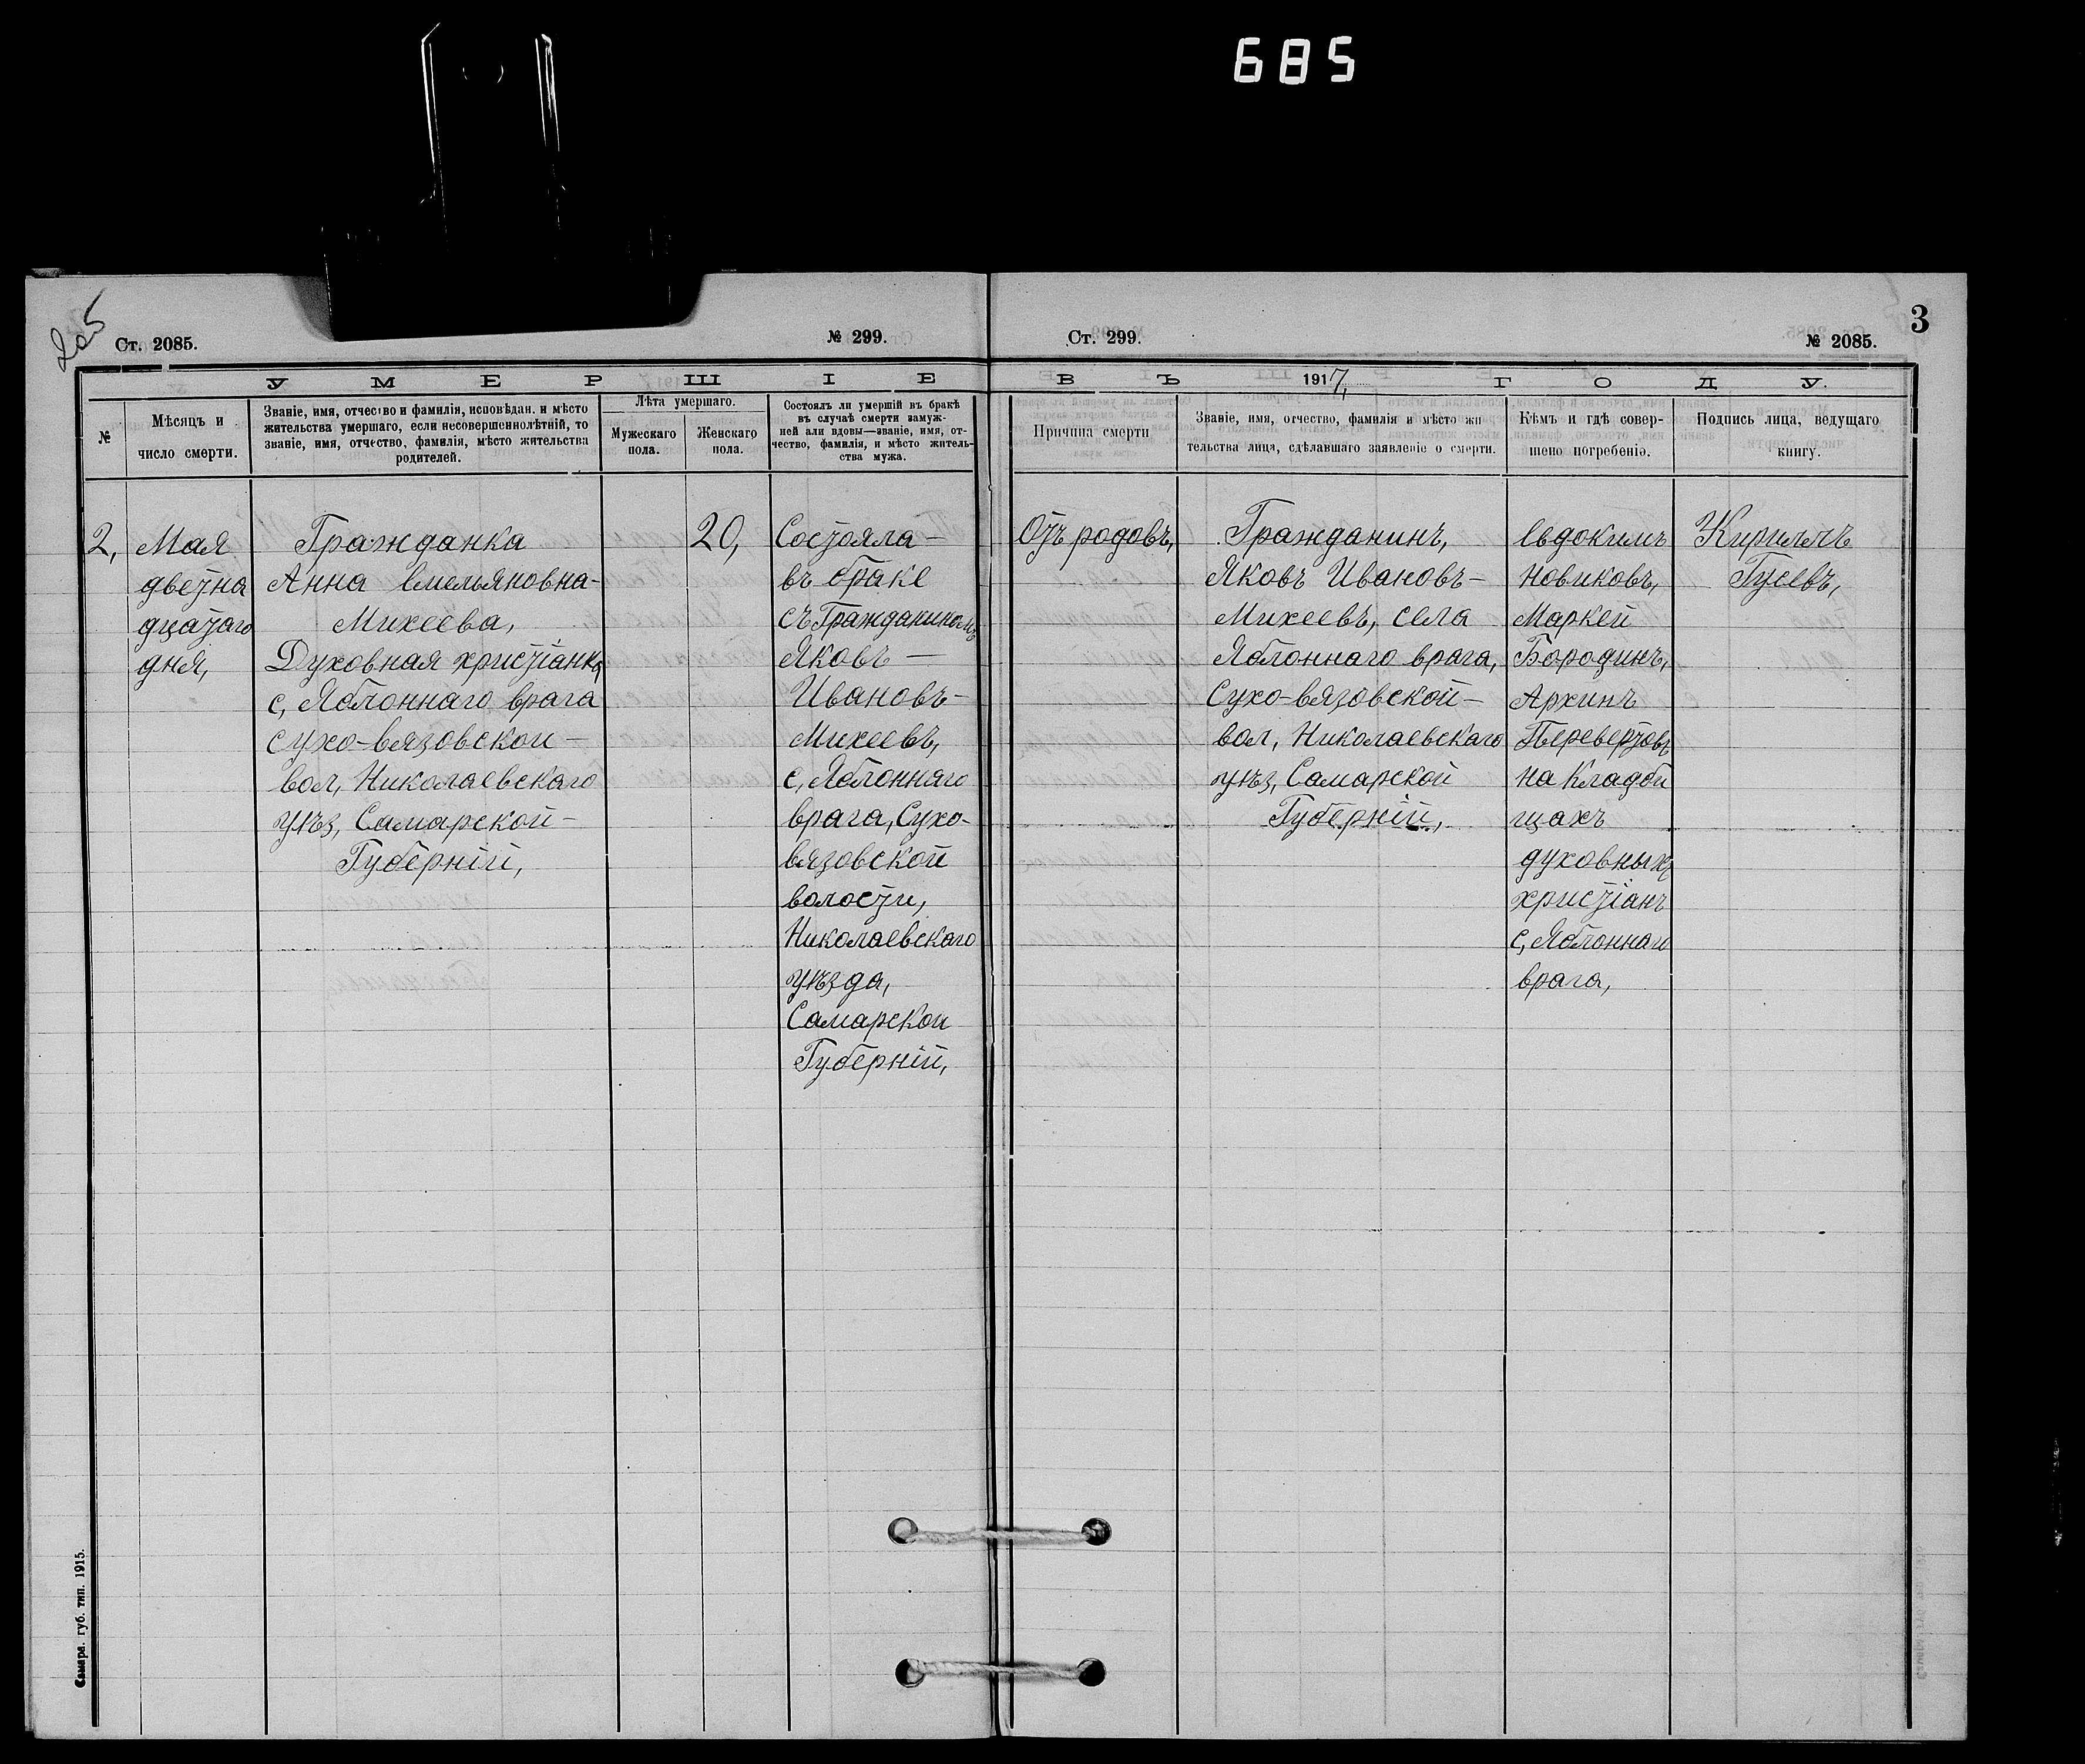 685
205
3
Ст. 2085.
№ 299.
Ст. 299.
№ 2085.
УМЕРШІЕ
ВЪ 1917, ГОДУ.
№
Мѣсяцъ и
число смерти.
Званіе, имя, отчество и фамилія, исповѣдан. и мѣсто
жительства умершаго, если несовершеннолѣтній, то
званіе, имя, отчество, фамилія, мѣсто жительства
родителей.
Лѣта умершаго.
Мужескаго
пола.
Женскаго
пола.
Состоялъ ли умершій въ бракѣ
въ случаѣ смерти замуж-
ней али вдовы—званіе, имя, от-
чество, фамилія, и мѣсто житель-
ства мужа.
Причина смерти
Званіе, имя, отчество, фамилія и мѣсто жи
тельства лица, сдѣлавшаго заявленіе о смерти.
Кѣмъ и гдѣ совер-
шено погребеніе.
Подпись лица, ведущаго
книгу.
2,
Мая
дветна
дцатаго
дня,
Гражданка
Анна Емельяновна-
Михеева,
Духовная христіанка
с, Яблоннаго врага
Сухо-вязовской-
вол, Николаевскаго
уѣз, Самарской-
Губерніи,
20,
Состояла-
въ браке
съ Гражданиномъ
Яковъ —
Ивановъ-
Михеевъ,
с, Яблоннаго
врага, Сухо-
вязовской
волости,
Николаевскаго
уѣзда,
Самарской
Губерніи,
Отъ родовъ,
Гражданинъ,
Яковъ Ивановъ-
Михеевъ, села
Яблоннаго врага,
Сухо-вязовской-
вол, Николаевскаго
уѣз, Самарской
Губерніи,
Евдокимъ
Новиковъ,
Маркей
Бородинъ,
Архипъ
Переверзовъ
на Кладби
щахъ
духовныхъ
христіанъ
с, Яблоннаго
врага,
Кириллъ
Гусевъ,
Самара. губ. тип. 1915.